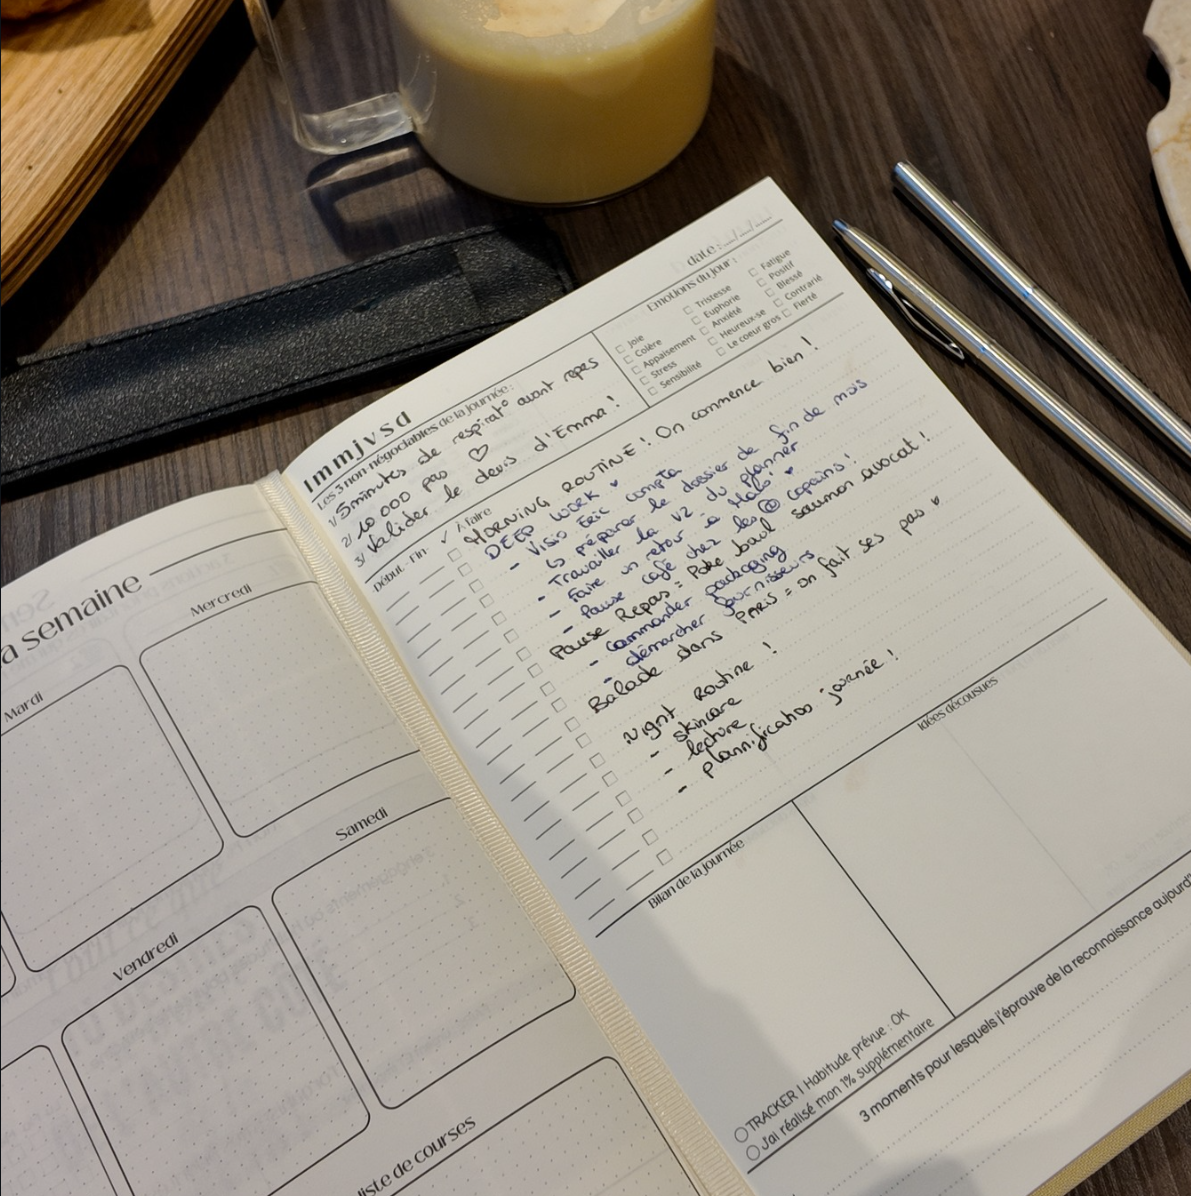 a semaine
Mardi
Mercredi
Vendredi
Samedi
liste de courses
lmmjvsd
date :
Les 3 non-négociables de la journée :
1/ 5 minutes de respirat° avant repas
2/ 10 000 pas ♡
3/ Valider le devis d'Emma !
Emotions du jour :
Joie
Colère
Appaisement
Stress
Sensibilité
Tristesse
Euphorie
Anxiété
Heureux-se
Le coeur gros
Fatigue
Positif
Blessé
Contrarié
Fierté
Début - Fin ✓ À faire
MORNING ROUTINE ! On commence bien !
DEEP WORK ♥
- Visio Eric compta
↳ préparer le dossier de fin de mois
- Travailler la V2 du planner
- Faire un retour à Malo ♥
- Pause café chez les @ copains !
Pause Repas = Poke bowl saumon avocat !
- commander packaging
- démarcher fournisseurs
Balade dans PARIS = on fait ses pas ♥
Night Routine !
- skincare
- lecture
- plannification journée !
Bilan de la journée
Idées décousues
TRACKER | Habitude prévue : OK
J'ai réalisé mon 1% supplémentaire
3 moments pour lesquels j'éprouve de la reconnaissance aujourd'